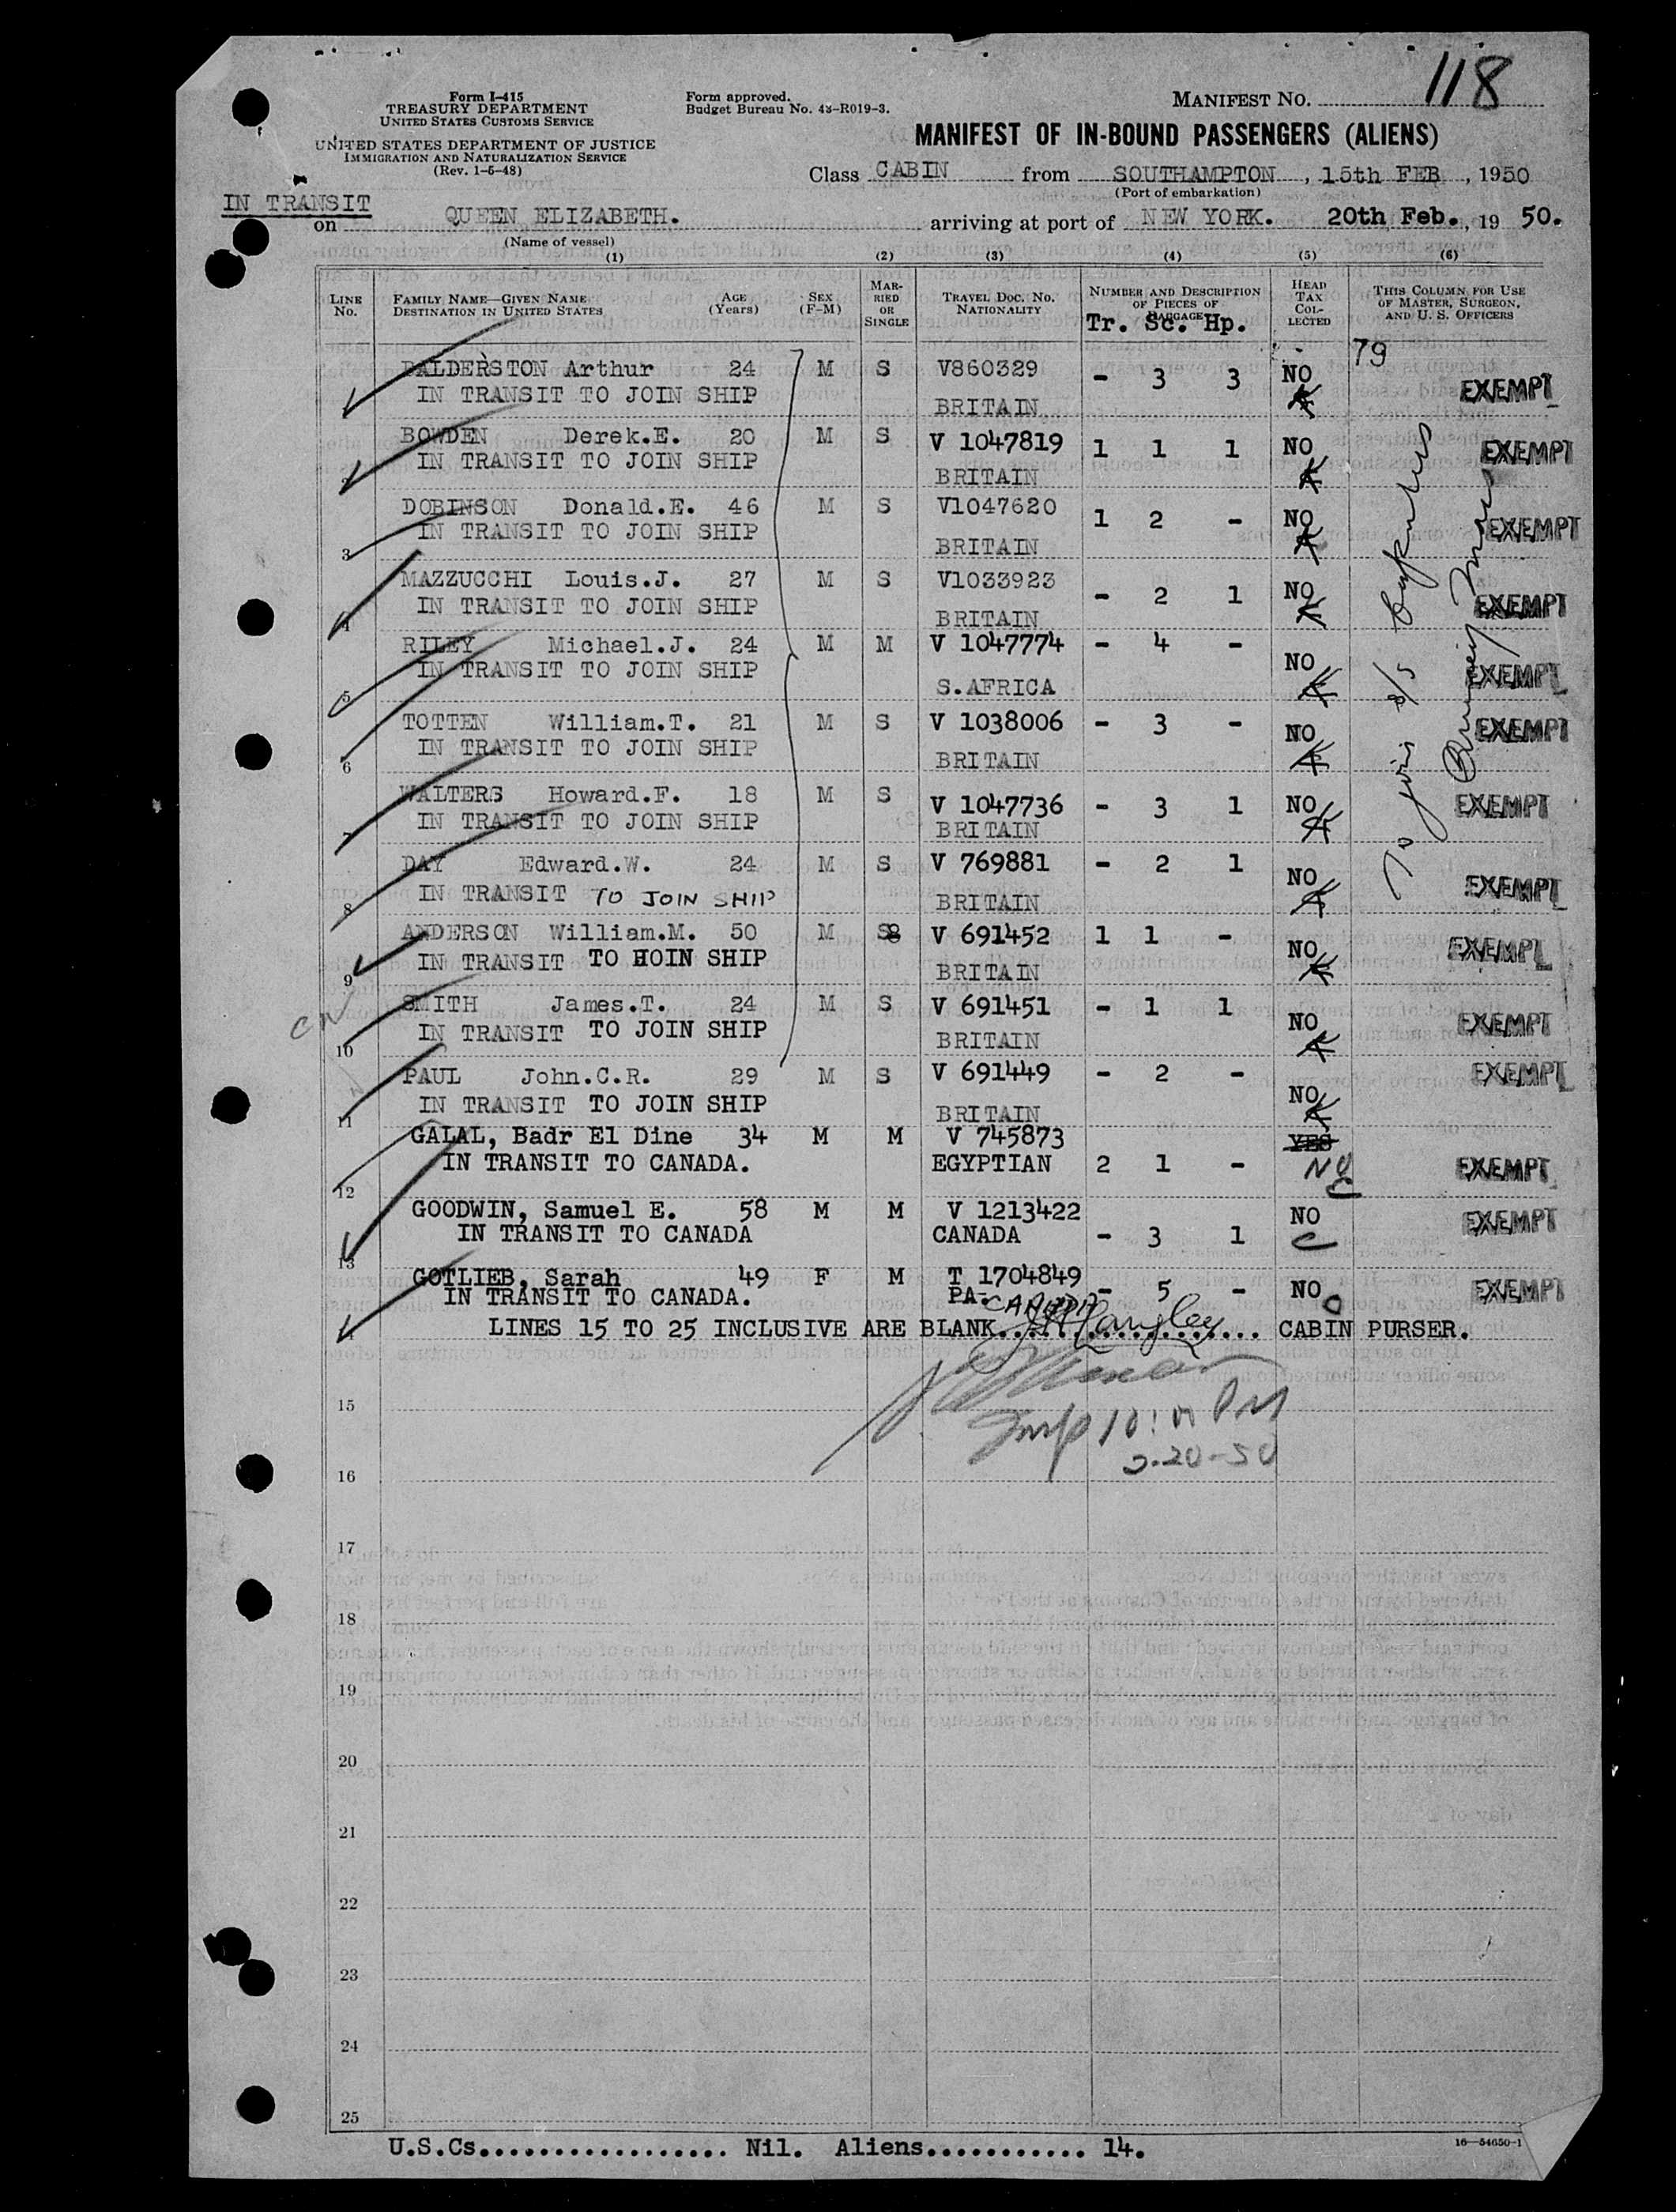 Form I-415
TREASURY DEPARTMENT
UNITED STATES CUSTOMS SERVICE
UNITED STATES DEPARTMENT OF JUSTICE
IMMIGRATION AND NATURALIZATION SERVICE
(Rev. 1-5-48)
Form approved.
Budget Bureau No. 43-R019-3.
MANIFEST NO. 118
MANIFEST OF IN-BOUND PASSENGERS (ALIENS)
Class CABIN from SOUTHAMPTON, 15th FEB, 1950
(Port of embarkation)
IN TRANSIT
on QUEEN ELIZABETH. arriving at port of NEW YORK. 20th Feb., 19 50.
(Name of vessel)
(1) (2) (3) (4) (5) (6)
LINE No. FAMILY NAME—GIVEN NAME DESTINATION IN UNITED STATES AGE (Years) SEX (F-M) MARRIED OR SINGLE TRAVEL DOC. NO. NATIONALITY NUMBER AND DESCRIPTION OF PIECES OF BAGGAGE HEAD TAX COLLECTED THIS COLUMN FOR USE OF MASTER, SURGEON, AND U. S. OFFICERS
Tr. Sc. Hp.
79
BALDERSTON Arthur 24 M S V860329 - 3 3 NO EXEMPT
IN TRANSIT TO JOIN SHIP BRITAIN
BOWDEN Derek.E. 20 M S V 1047819 1 1 1 NO EXEMPT
IN TRANSIT TO JOIN SHIP BRITAIN
DOBINSON Donald.E. 46 M S V1047620 1 2 - NO EXEMPT
3 IN TRANSIT TO JOIN SHIP BRITAIN
MAZZUCCHI Louis.J. 27 M S V1033923 - 2 1 NO EXEMPT
4 IN TRANSIT TO JOIN SHIP BRITAIN
RILEY Michael.J. 24 M M V 1047774 - 4 - NO EXEMPT
5 IN TRANSIT TO JOIN SHIP S.AFRICA
TOTTEN William.T. 21 M S V 1038006 - 3 - NO EXEMPT
6 IN TRANSIT TO JOIN SHIP BRITAIN
WALTERS Howard.F. 18 M S V 1047736 - 3 1 NO EXEMPT
7 IN TRANSIT TO JOIN SHIP BRITAIN
DAY Edward.W. 24 M S V 769881 - 2 1 NO EXEMPT
8 IN TRANSIT TO JOIN SHIP BRITAIN
ANDERSON William.M. 50 M S V 691452 1 1 - NO EXEMPT
9 IN TRANSIT TO HOIN SHIP BRITAIN
SMITH James.T. 24 M S V 691451 - 1 1 NO EXEMPT
10 IN TRANSIT TO JOIN SHIP BRITAIN
PAUL John.C.R. 29 M S V 691449 - 2 - NO EXEMPT
11 IN TRANSIT TO JOIN SHIP BRITAIN
GALAL, Badr El Dine 34 M M V 745873 YES
12 IN TRANSIT TO CANADA. EGYPTIAN 2 1 - NO EXEMPT
GOODWIN, Samuel E. 58 M M V 1213422 NO EXEMPT
13 IN TRANSIT TO CANADA CANADA - 3 1 C
GOTLIEB, Sarah 49 F M T 1704849 - 5 - NO EXEMPT
IN TRANSIT TO CANADA. PA. CANADA
LINES 15 TO 25 INCLUSIVE ARE BLANK.................. CABIN PURSER.
To join s/s
15
16
2-20-50
17
18
19
20
21
22
23
24
25
U.S.Cs.................. Nil. Aliens........... 14.
16-54650-1